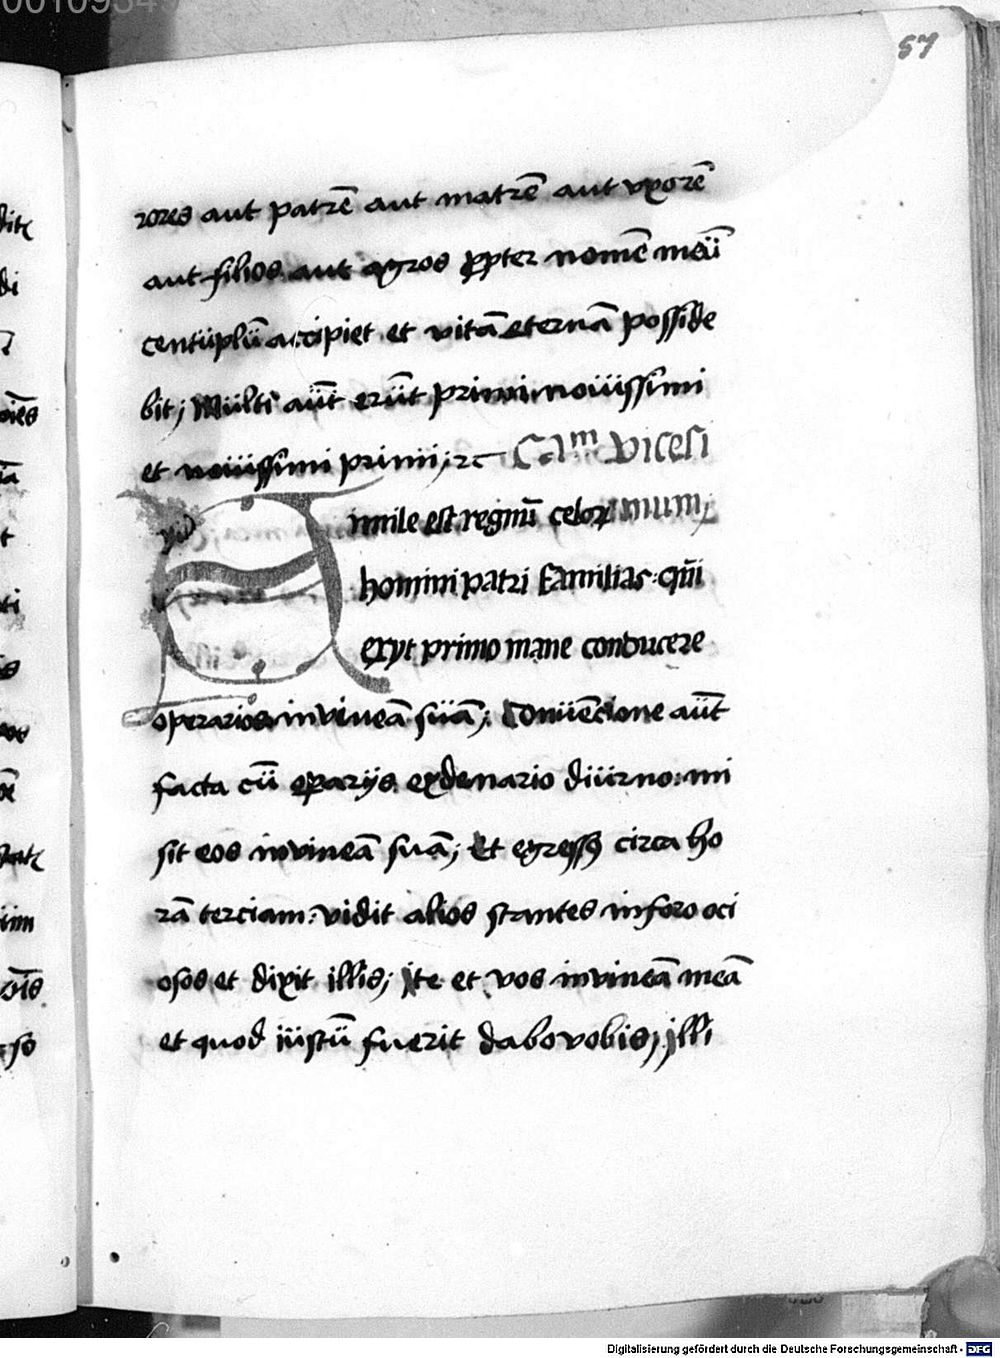 57
rores aut patrē aut matrē aut vxorē
aut filios aut agros ꝓpter nomē meū
centuplū accipiet et vitā eternā posside
bit; Multi aūt erūt primi nouissimi
et nouissimi primi; ⁊c Caᵐ vicesi
Simile est regnū celoꝝ mum;
homini patri familias: qui
exyt primo mane conducere
operarios in vineā suā; Conuēcione aūt
facta cū oparijs ex denario diurno: mi
sit eos in vineā suā; Et egressꝰ circa ho
rā terciam: vidit alios stantes in foro oci
osos et dixit illis; ite et vos in vineā meā
et quod iustū fuerit dabo vobis; illi
dit
di
oīes
iā
t
ti
iim
so
Digitalisierung gefördert durch die Deutsche Forschungsgemeinschaft - DFG